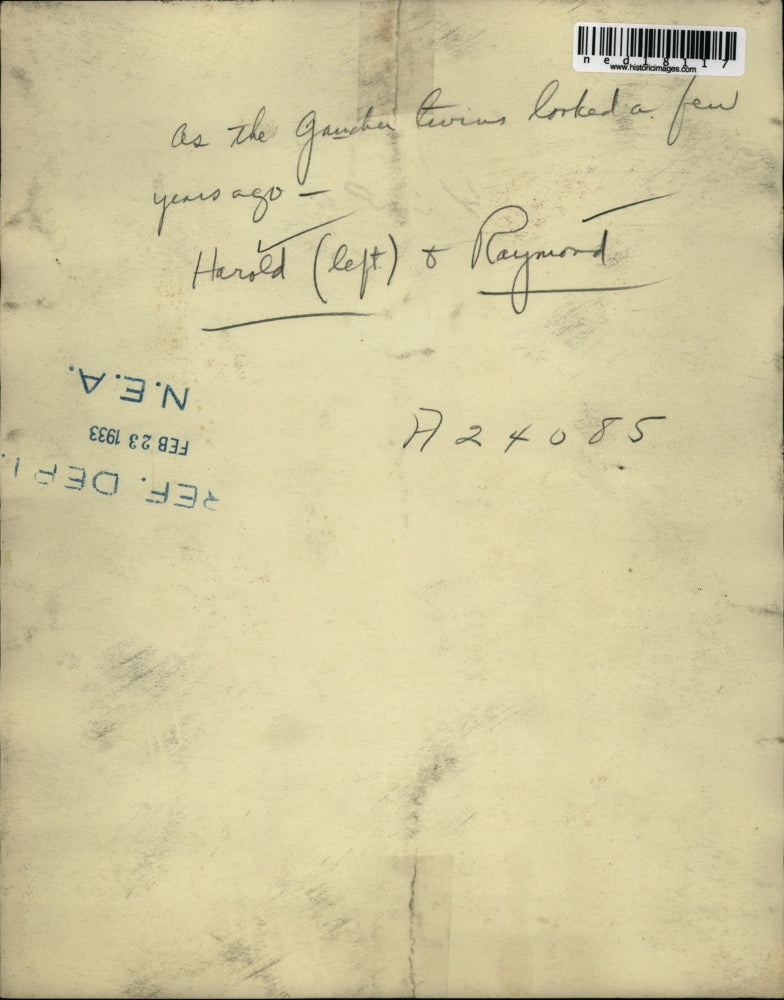 ned18117
www.historicimages.com
As the twins looked a few
years ago —
Harold (left) & Raymond
A24085
N.E.A.
FEB 23 1933
REF. DEPT.